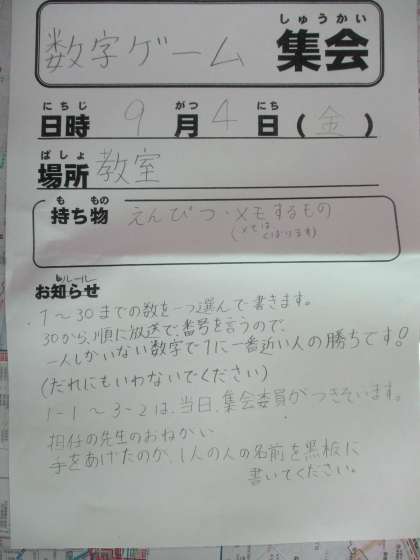 数字ゲーム 集会
しゅうかい
にちじ がつ にち
日時 9月4日(金)
ばしょ
場所 教室
も もの
持ち物 えんぴつ・メモするもの
(メモはくばります)
ルール
お知らせ
1〜30までの数を一つ選んで書きます。
30から、順に放送で、番号を言うので、
一人しかいない数字で1に一番近い人の勝ちです!
(だれにもいわないでください)
1-1〜3-2は、当日、集会委員がつきそいます。
担任の先生のおねがい
手をあげたのが、1人の人の名前を黒板に
書いてください。